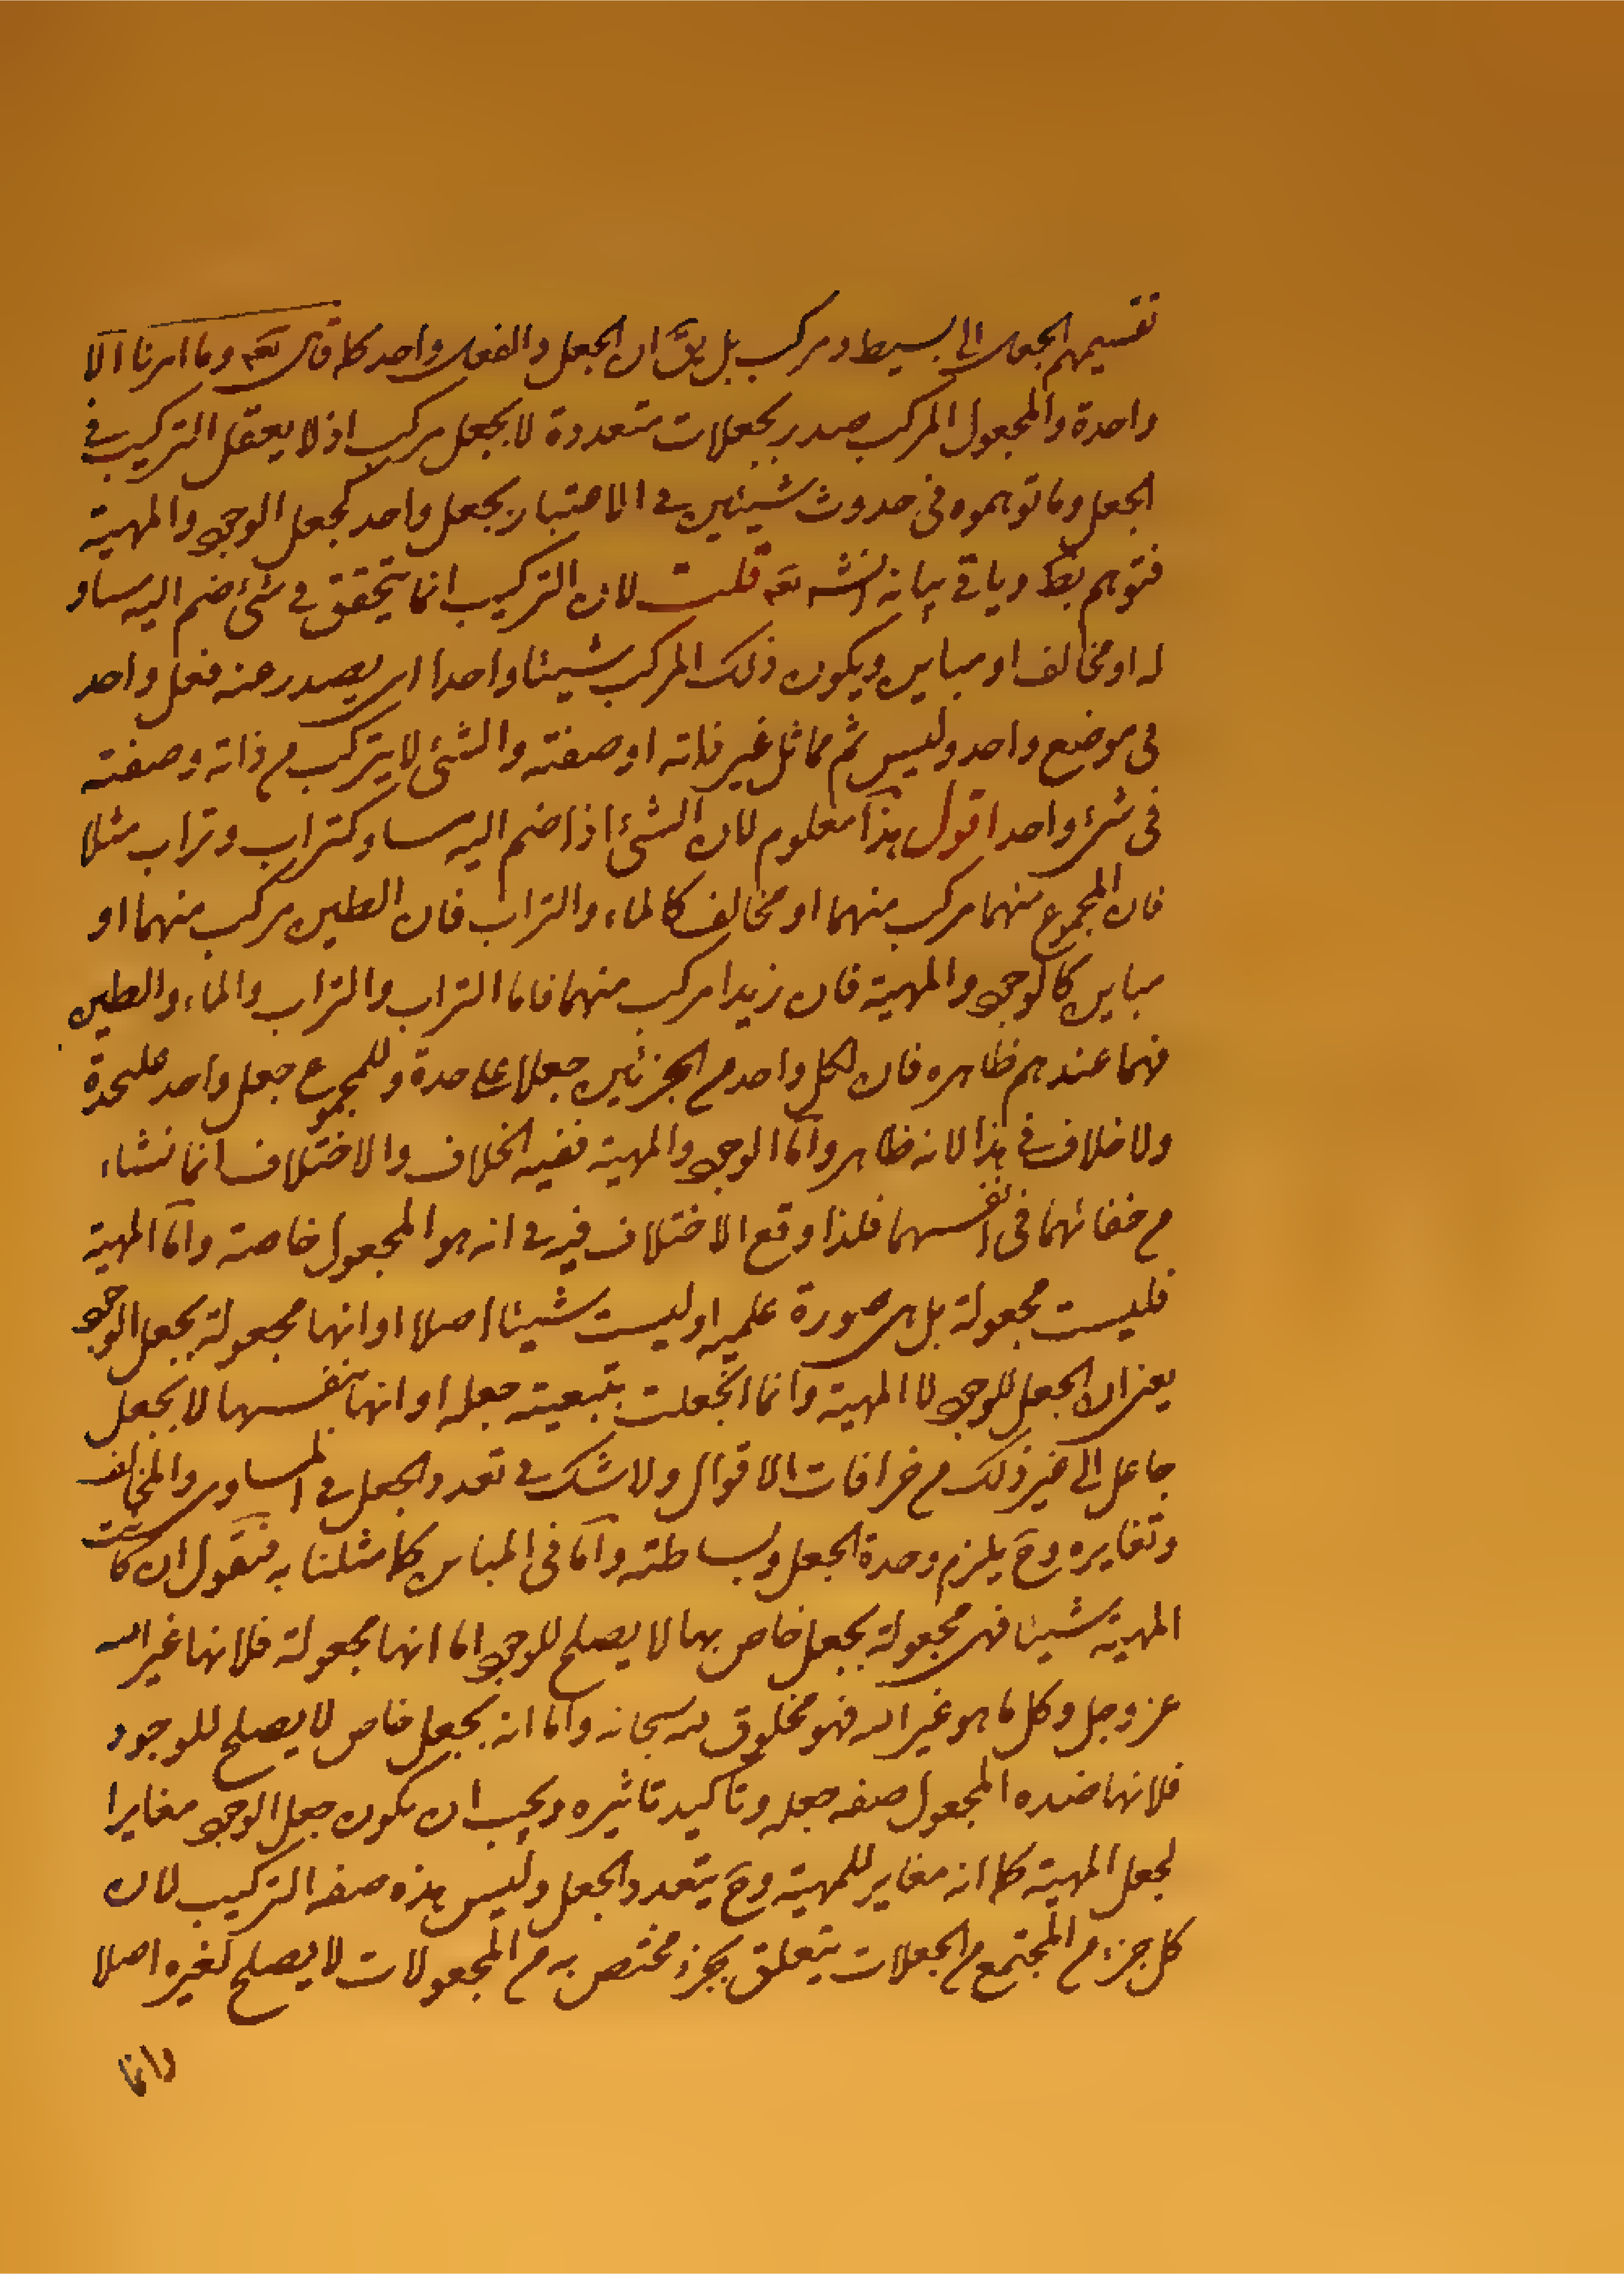 تقسيمهم الجعل الى بسيط ومركب بل يق ان الجعل والفعل واحد كما قال تعه وما امرنا الا
واحدة والمجعول المركب صدر بجعلات متعددة لا بجعل مركب اذ لا يعقل التركيب في
الجعل وما توهموه فى حدوث شيئين في الاعتبار بجعل واحد كجعل الوجو والمهية
فتوهم بط وياتي بيانه انشه تعه قلت لان التركيب انما يتحقق في شئ ضم اليه مساو
له او مخالف او مباين ويكون ذلك المركب شيئا واحدا اى يصدر عنه فعل واحد
فى موضع واحد وليس ثم مماثل غير ذاته او صفته والشئ لا يتركب م ذاته وصفته
فى شئ واحد اقول هذا معلوم لان الشئ اذا ضم اليه مساو كتراب وتراب مثلا
فان المجموع منهما مركب منهما او مخالف كالماء والتراب فان الطين مركب منهما او
مباين كالوجو والمهية فان زيدا مركب منهما فاما التراب والتراب والماء والطين
فهما عندهم ظاهره فان لكل واحد م الجزئين جعلا على حدة وللمجموع جعل واحد عليحدة
ولا خلاف في هذا لانه ظاهر واما الوجو والمهية ففيه الخلاف والاختلاف انما نشاء
م خفائهما فى انفسهما فلذا وقع الاختلاف فيه في انه هو المجعول خاصة واما المهية
فليست مجعولة بل هى صورة علميه او ليست شيئا اصلا او انها مجعولة بجعل الوجو
يعنى ان الجعل للوجو لا المهية وانما انجعلت بتبعية جعله او انها بنفسها لا بجعل
جاعل الى غير ذلك م خرافات الاقوال ولا شك في تعدد الجعل في المساوى والمخالف
وتغايره وح يلزم وحدة الجعل وبساطته واما فى المباين كما مثلنا به فنقول ان كانت
المهية شيئا فهى مجعولة بجعل خاص بها لا يصلح للوجو اما انها مجعولة فلانها غير الله
عز وجل وكل ما هو غير الله فهو مخلوق لله سبحانه واما انه بجعل خاص لا يصلح للوجود
فلانها ضده المجعول صفه جعله وتاكيد تاثيره ويجب ان يكون جعل الوجو مغايرا
لجعل المهية كما انه مغاير للمهية وح يتعدد الجعل وليس هذه صفه التركيب لان
كل جزء م المجتمع م الجعلات يتعلق بجزء مختص به م المجعولات لا يصلح لغيره اصلا
وانما